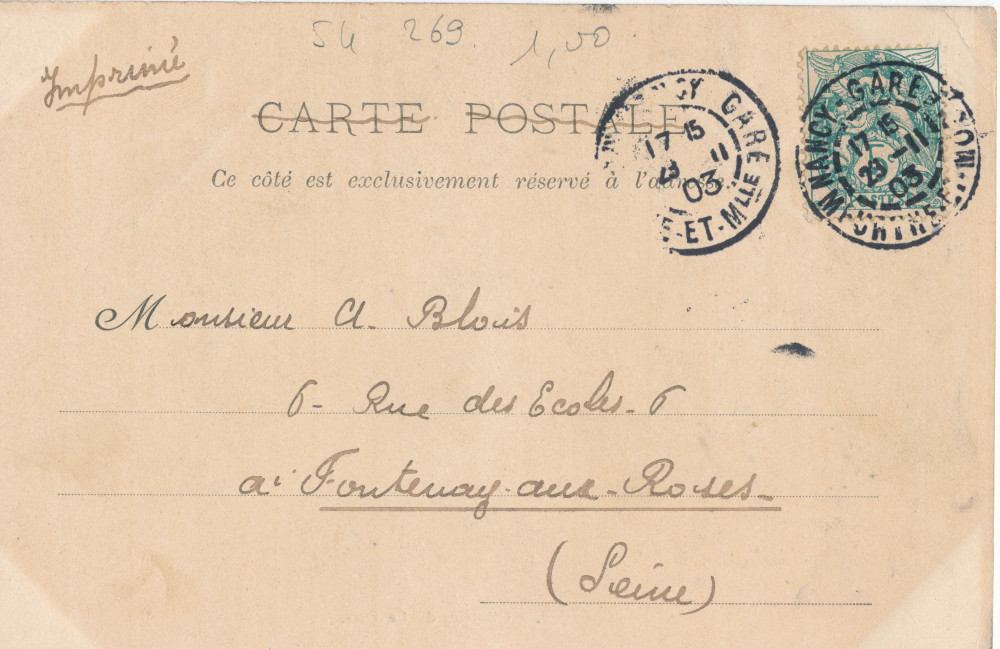 54 269 1,50
Imprimé
CARTE POSTALE
Ce côté est exclusivement réservé à l'adresse.
NANCY GARE
17 15
11
03
ET-Mlle
NANCY-GARE
17 15
29 -11
03
MEURTHE-ET-MOS
Monsieur A. Blois
6- Rue des Ecoles- 6
a' Fontenay-aux-Roses-
(Seine)